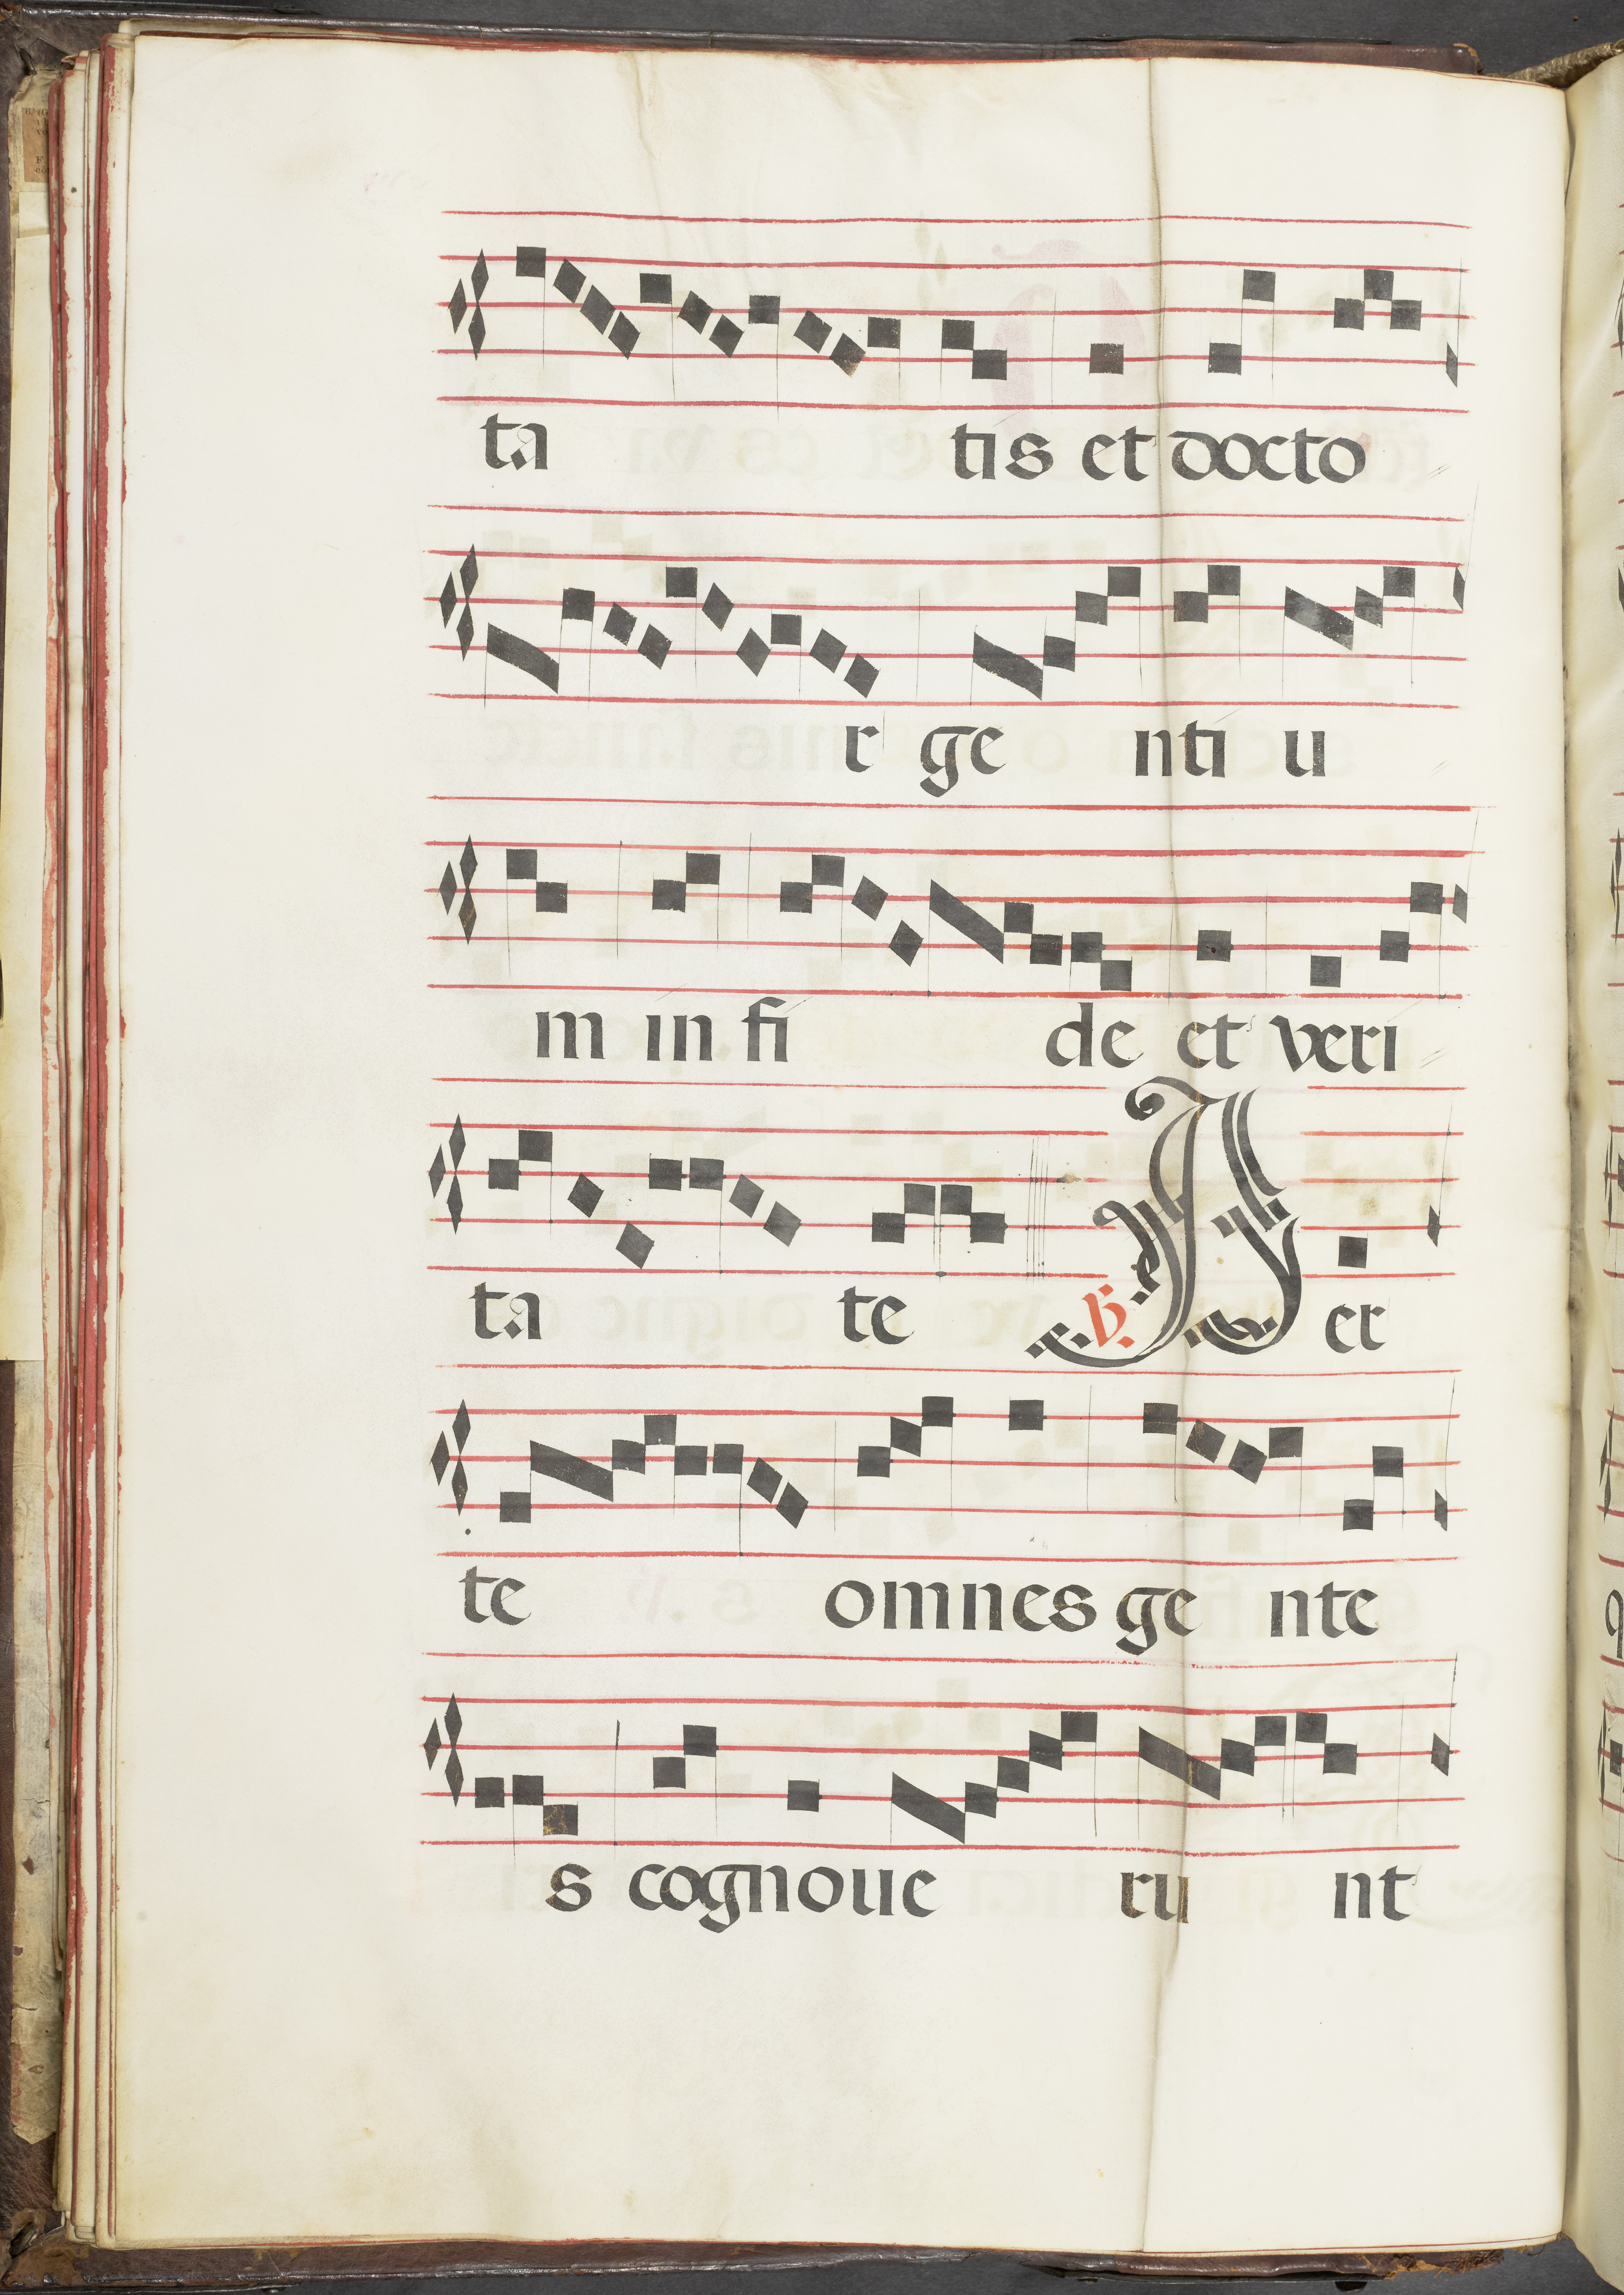 ta tis et docto
r ge nti u
m in fi de et veri
ta te ℣. P er
te omnes ge nte
s cognoue ru nt